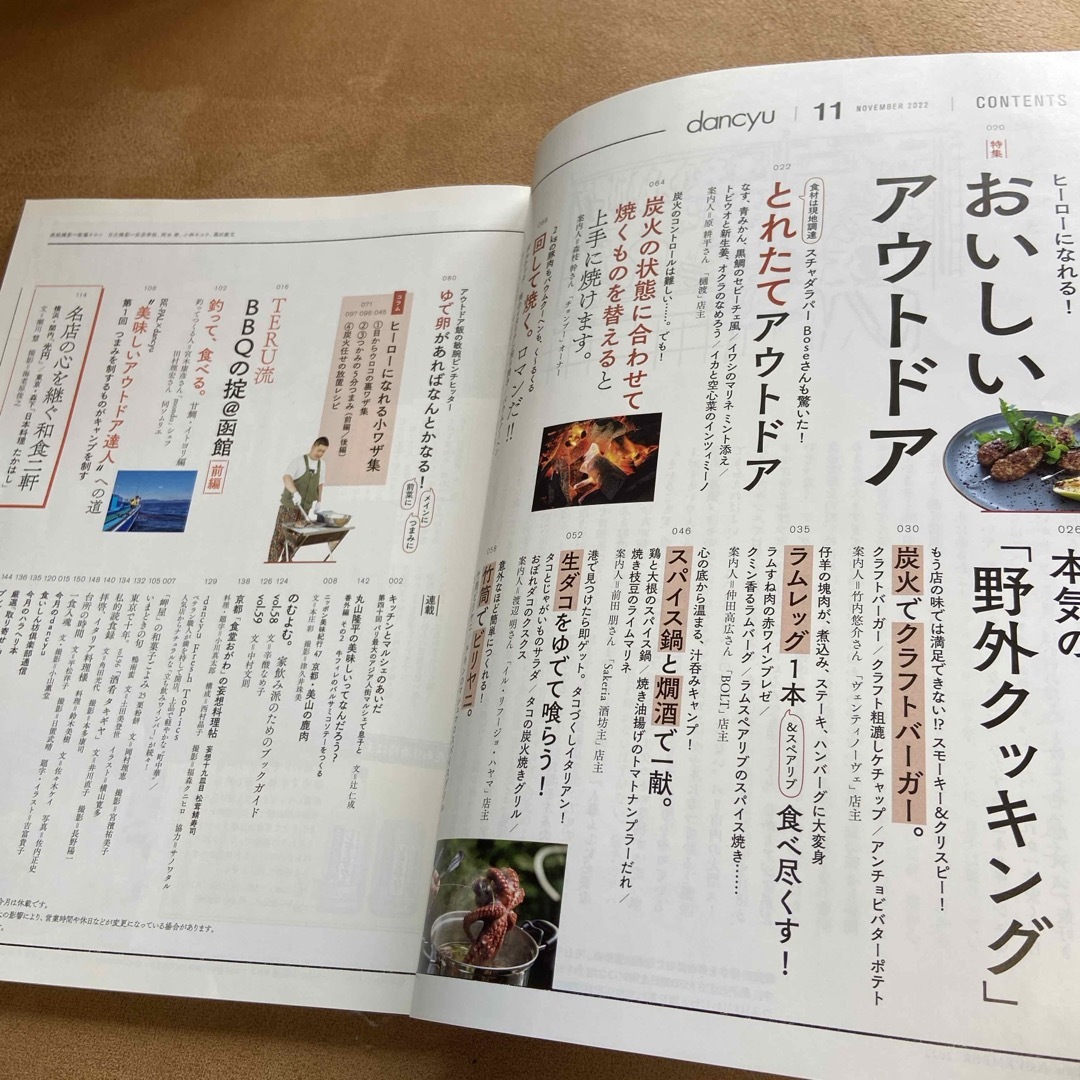 dancyu | 11 NOVEMBER 2022 | CONTENTS
020
特集
ヒーローになれる!
おいしい
アウトドア
022
食材は現地調達
スチャダラパー Boseさんも驚いた!
とれたてアウトドア
なす、青みかん、黒鯛のセビーチェ風/イワシのマリネ ミント添え/
トビウオと新生姜、オクラのなめろう/イカと空心菜のインツィミーノ
案内人=原 耕平さん 「樋渡」店主
064
炭火のコントロールは難しい……。でも!
炭火の状態に合わせて
焼くものを替えると
上手に焼けます。
案内人=森枝 幹さん 「チョンプー」オーナー
2kgの豚肉もバウムクーヘンも、くるくる
回して焼く。ロマンだ!!
026
本気の
「野外クッキング」
030
もう店の味では満足できない!? スモーキー&クリスピー!
炭火でクラフトバーガー。
クラフトバーガー クラフト粗漉しケチャップ/アンチョビバターポテト
案内人=竹内悠介さん 「ヴェンティノーヴェ」店主
035
仔羊の塊肉が、煮込み、ステーキ、ハンバーグに大変身
ラムレッグ1本
&スペアリブ
食べ尽くす!
ラムすね肉の赤ワインブレゼ/
クミン香るラムバーグ/ラムスペアリブのスパイス焼き……
案内人=仲田高広さん 「BOLT」店主
046
心の底から温まる、汁呑みキャンプ!
スパイス鍋と燗酒で一献。
鶏と大根のスパイス鍋/焼き油揚げのトマトナンプラーだれ/
焼き枝豆のライムマリネ
案内人=前田 朋さん 「Sakeria 酒坊主」店主
052
港で見つけたら即ゲット。タコづくしイタリアン!
生ダコをゆでて喰らう!
タコとじゃがいものサラダ/タコの炭火焼きグリル/
おぼれダコのクスクス
案内人=渡辺 明さん 「イル・リフージョ・ハヤマ」店主
058
意外なほど簡単につくれる!
竹筒でビリヤニ。
080
アウトドア飯の敏腕ピンチヒッター
ゆで卵があればなんとかなる!
メインに
つまみに
前菜に
コラム
ヒーローになれる小ワザ集
071 ①目からウロコの裏ワザ集
②③つかみの5分つまみ(前編/後編)
097 098 045
④炭火任せの放置レシピ
016
TERU流
BBQの掟@函館
前編
102
釣って、食べる。
甘鯛・イトヨリ編
108
ALPS×dancyu
"美味しいアウトドア達人"への道
第1回 つまみを制するものがキャンプを制す
114
名店の心を継ぐ和食二軒
横浜・関内「光円」/東京・森下「日本料理 たかはし」
連載
002 キッチンとマルシェのあいだ
第四十回 パリ最大のアジア人街マルシェで息子と 文=辻仁成
142 丸山隆平の美味しいってなんだろう?
番外編 その2 牛フィレのバルサミコソテーをつくる
008 ニッポン美味紀行 47 京都・美山の鹿肉
文=本庄 彩 撮影=津久井珠美
124 のむよむ。 家飲み派のためのブックガイド
vol.58 文=辛酸なめ子
138 vol.59 文=中村文則
120 京都「食堂おがわ」の妄想料理帖 妄想十九皿目 松茸鯖寿司
料理・題字=小川真太郎 構成=西村晶子
129 dancyu Fresh Topics
007 「岬屋」の和菓子ごよみ
いまときの句
155 東京で十年。
161 私的読食録 文=角田光代
132 sirh「酒肴 タキギヤ」 文=井川直子
094 拝啓、イタリア料理様
093 台所の時間
015 一食入魂
120 今月のdancyu
135 食いしん坊倶楽部通信
136 今月のハラヘリ本
144 厳選、お取り寄せ